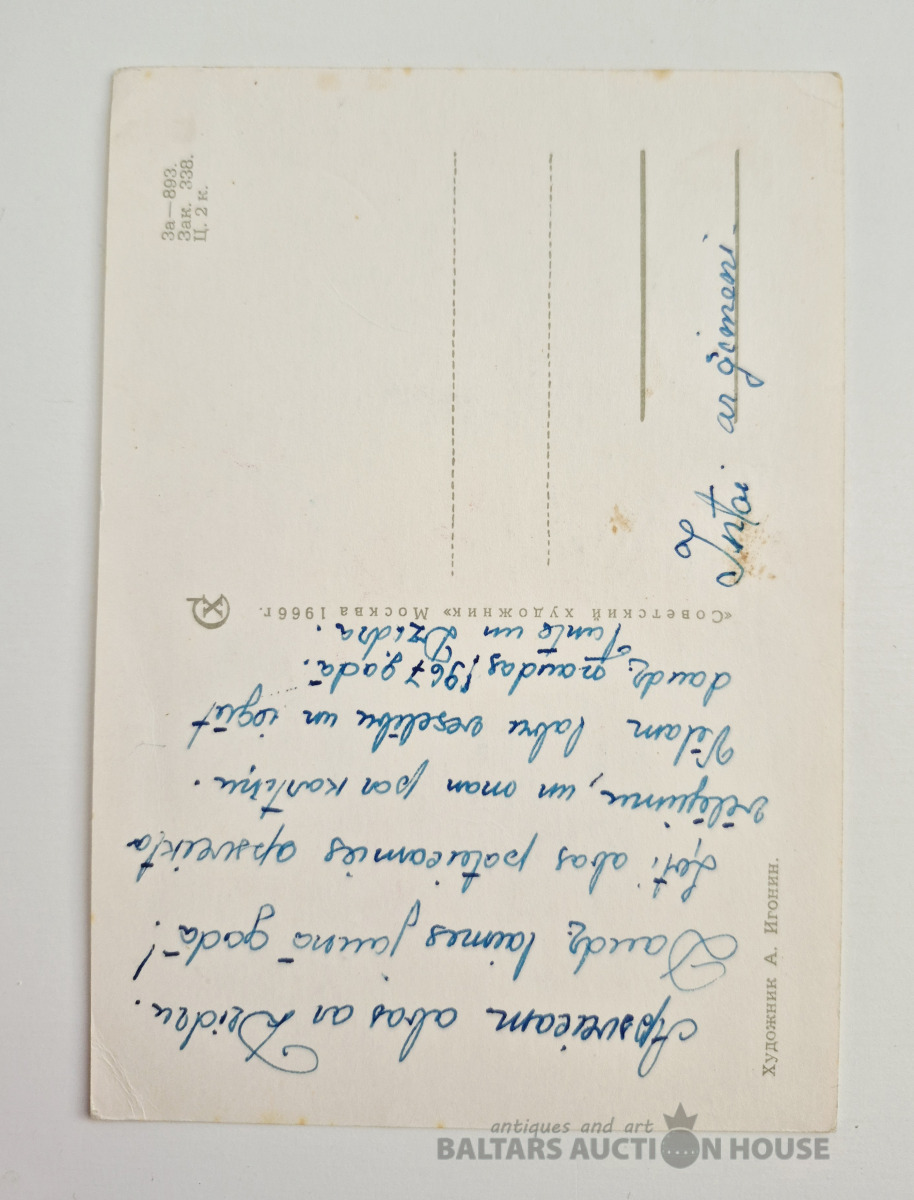 За—893.
Зак. 338.
Ц. 2 к.
«Советский художник» Москва 1966г.
Художник А. Игонин.
Intai ar ģimeni.
Apsveicam abas ar Dzidru.
Daudz laimes jaunā gadā!
Ļoti abas pateicamies apsveikta
vēlējumu, un man par kartiņu.
Vēlam labu veselību un iegūt
daudz naudas! 1967 gadā.
un Dzidra.
antiques and art
BALTARS AUCTION HOUSE